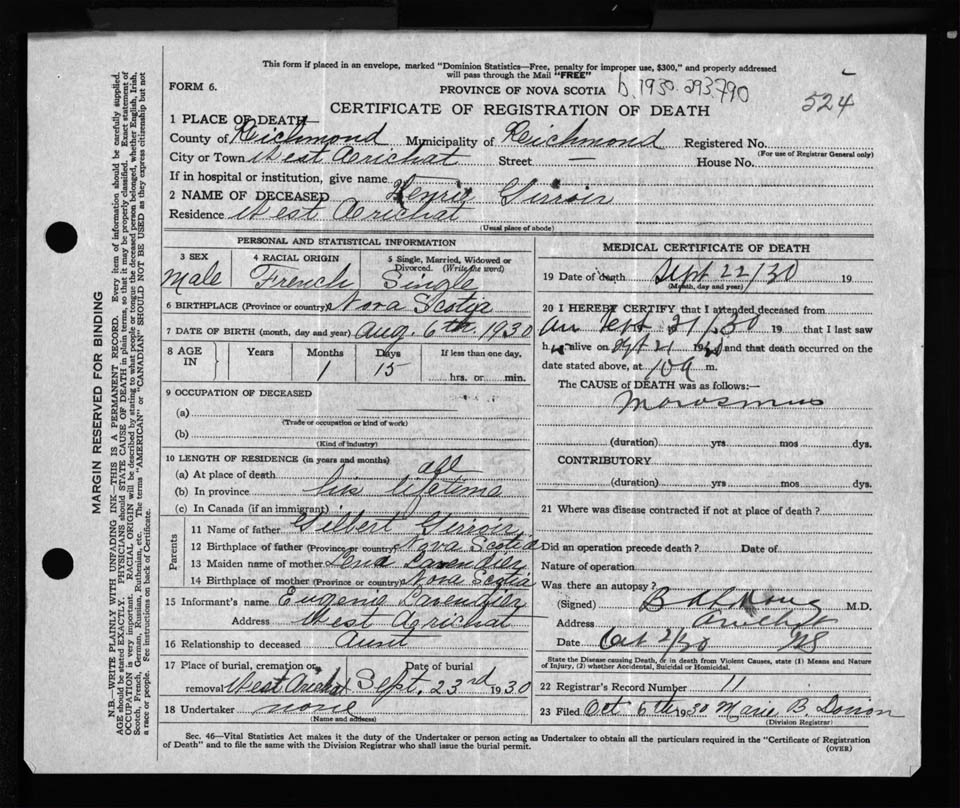 This form if placed in an envelope, marked "Dominion Statistics—Free, penalty for improper use, $300," and properly addressed
will pass through the Mail "FREE"
FORM 6.
PROVINCE OF NOVA SCOTIA
b. 1930. 293790
524
CERTIFICATE OF REGISTRATION OF DEATH
1 PLACE OF DEATH—
County of Richmond Municipality of Richmond Registered No.
(For use of Registrar General only)
City or Town West Arichat Street — House No.
If in hospital or institution, give name
2 NAME OF DECEASED Henrie Girroir
Residence West Arichat
(Usual place of abode)
PERSONAL AND STATISTICAL INFORMATION
3 SEX 4 RACIAL ORIGIN 5 Single, Married, Widowed or
Divorced. (Write the word)
Male French Single
6 BIRTHPLACE (Province or country) Nova Scotia
7 DATE OF BIRTH (month, day and year) Aug. 6th, 1930
8 AGE IN Years Months Days If less than one day,
1 15 hrs. or min.
9 OCCUPATION OF DECEASED
(a)
(Trade or occupation or kind of work)
(b)
(Kind of industry)
10 LENGTH OF RESIDENCE (in years and months)
(a) At place of death all
(b) In province his lifetime
(c) In Canada (if an immigrant)
Parents
11 Name of father Gilbert Girroir
12 Birthplace of father (Province or country) Nova Scotia
13 Maiden name of mother Lavendier
14 Birthplace of mother (Province or country) Nova Scotia
15 Informant's name Eugenie Lavendier
Address West Arichat
16 Relationship to deceased Aunt
17 Place of burial, cremation or Date of burial
removal West Arichat Sept. 23rd 1930
18 Undertaker none
(Name and address)
MEDICAL CERTIFICATE OF DEATH
19 Date of death Sept 22/30 19
(Month, day and year)
20 I HEREBY CERTIFY that I attended deceased from
Sept 21/30 19 that I last saw
h alive on Sept 21 1930 and that death occurred on the
date stated above, at 10 a m.
The CAUSE of DEATH was as follows:—
Marasmus
(duration) yrs mos dys.
CONTRIBUTORY
(duration) yrs mos dys.
21 Where was disease contracted if not at place of death?
Did an operation precede death? Date of
Nature of operation
Was there an autopsy?
(Signed) M.D.
Address Arichat
Date Oct 2/30 NS
State the Disease causing Death, or in death from Violent Causes, state (1) Means and Nature
of Injury, (2) whether Accidental, Suicidal or Homicidal.
22 Registrar's Record Number 11
23 Filed Oct 6th 1930 Marie B. Doiron
(Division Registrar)
Sec. 46—Vital Statistics Act makes it the duty of the Undertaker or person acting as Undertaker to obtain all the particulars required in the "Certificate of Registration
of Death" and to file the same with the Division Registrar who shall issue the burial permit.
(OVER)
MARGIN RESERVED FOR BINDING
N.B.—WRITE PLAINLY WITH UNFADING INK—THIS IS A PERMANENT RECORD. Every item of information should be carefully supplied.
AGE should be stated EXACTLY. PHYSICIANS should STATE CAUSE OF DEATH in plain terms, so that it may be properly classified. Exact statement of
OCCUPATION is very important. RACIAL ORIGIN will be described by stating to what people or tongue the deceased person belonged, whether English, Irish,
Scotch, French, German, Russian, Ruthenian, etc. The terms "AMERICAN" or "CANADIAN" SHOULD NOT BE USED as they express citizenship but not
a race or people. See instructions on back of Certificate.